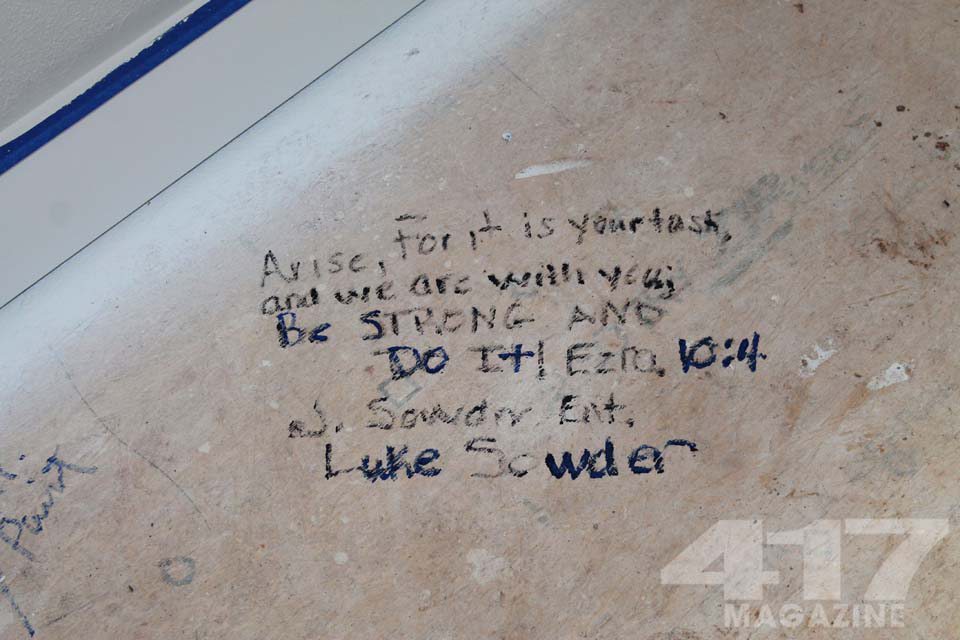 Arise, For it is your task,
and we are with you;
Be STRONG AND
Do It! Ezra. 10:4
J. Sowder Ent.
Luke Sowder
Paint
417
MAGAZINE